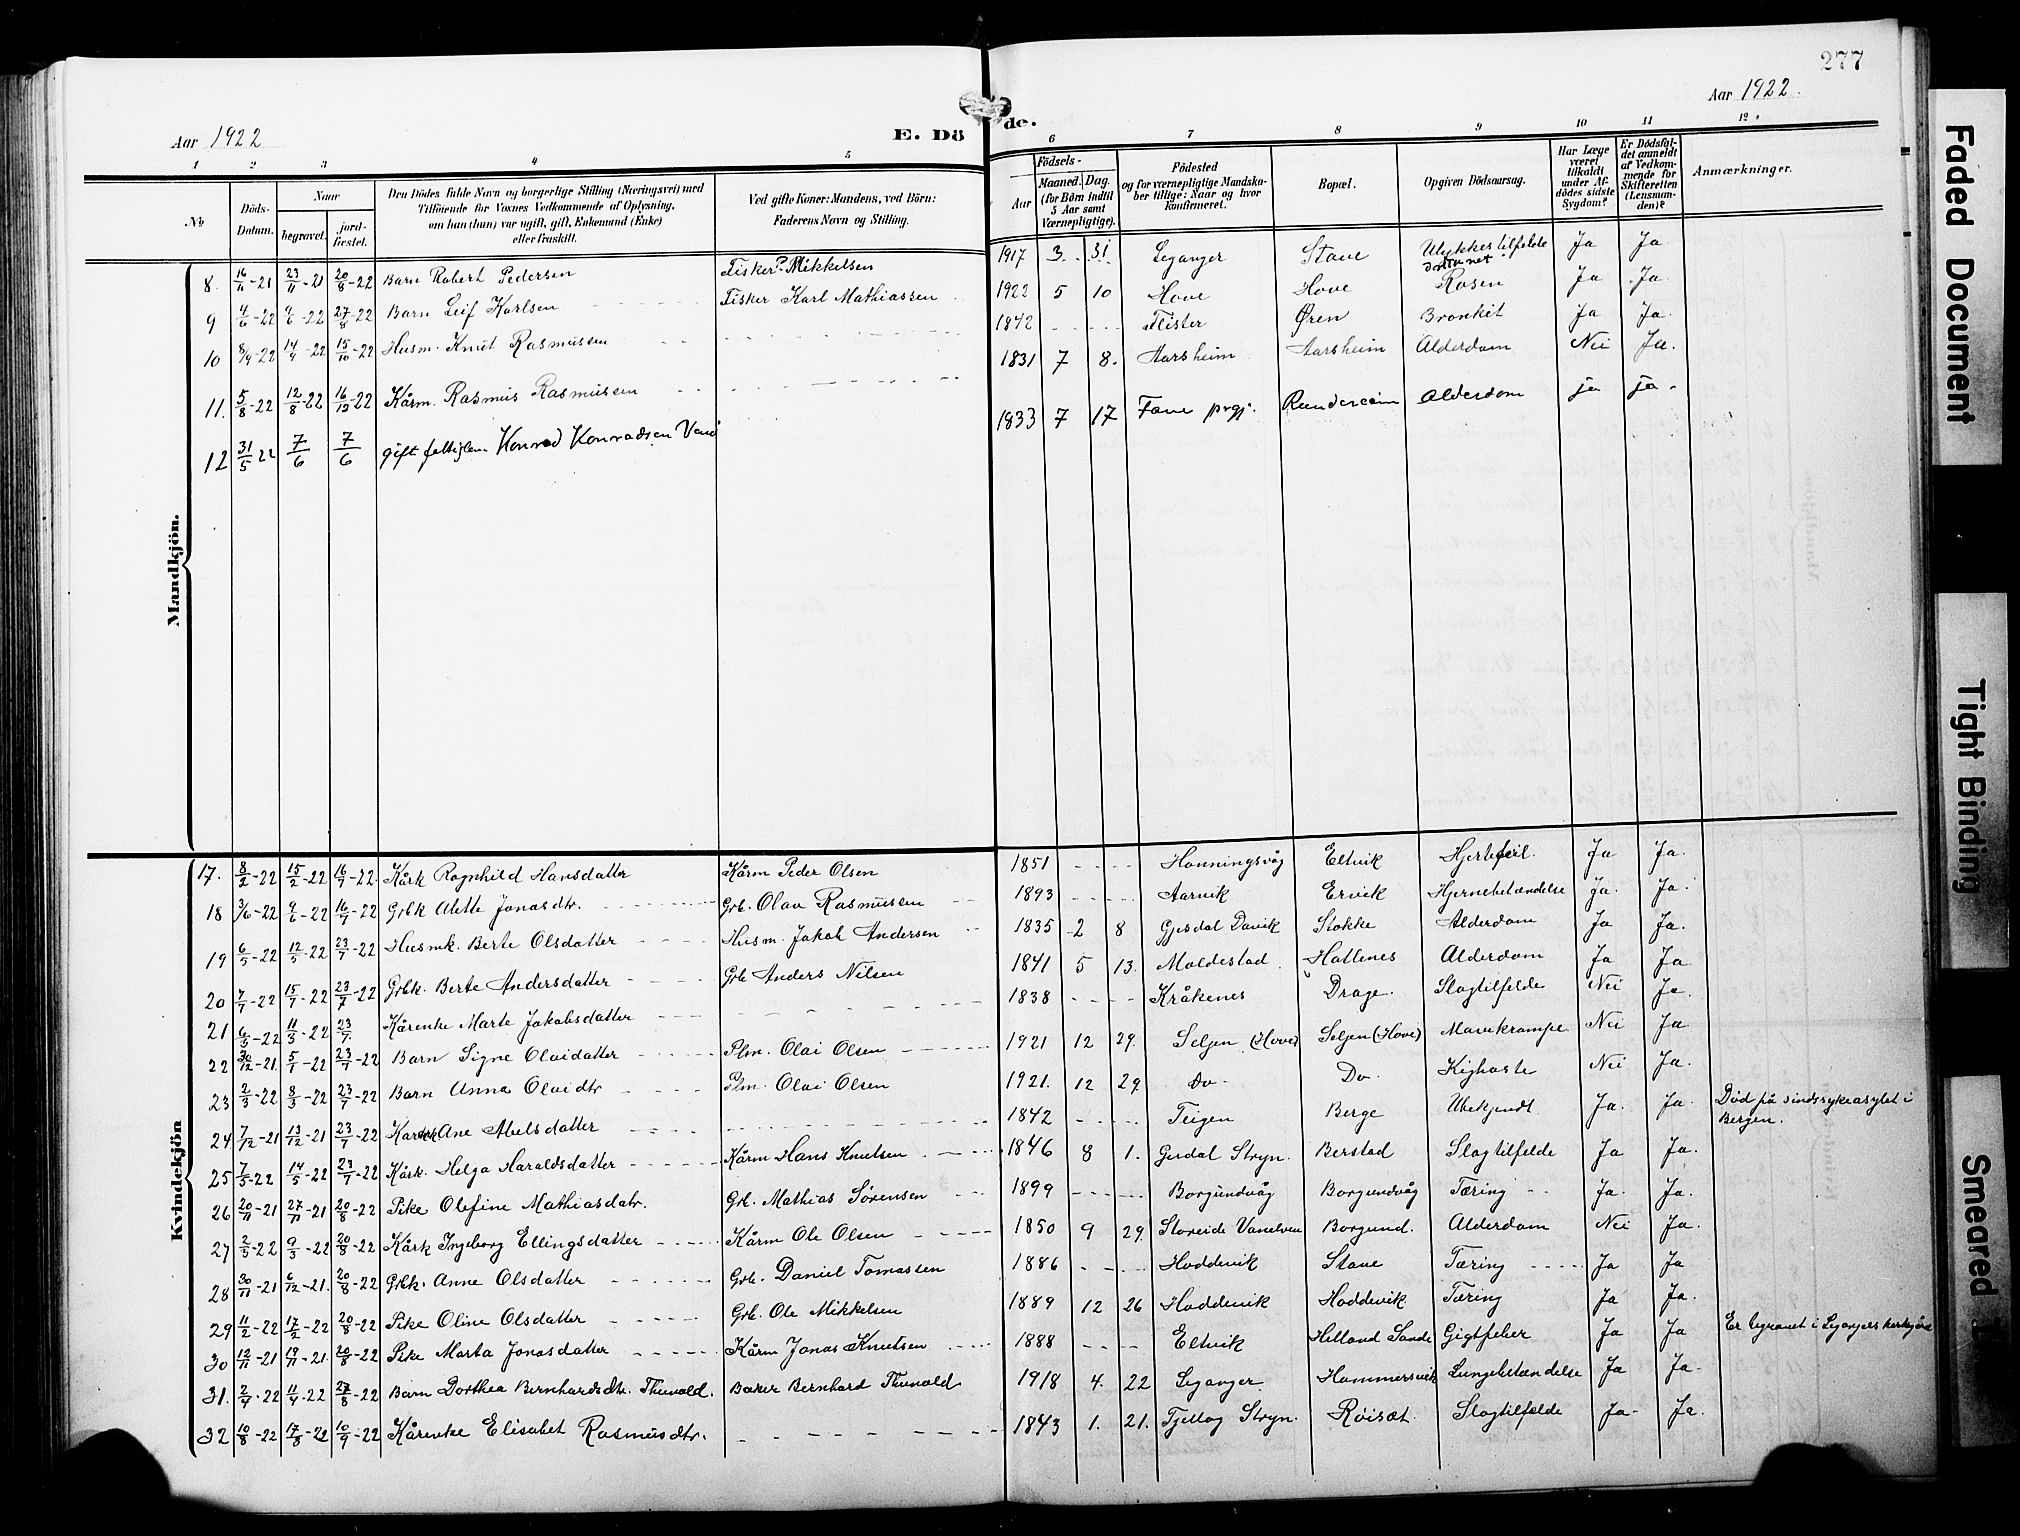 277
Aar 1922
Aar 1922.
E. Döde.
1 2 3 4 5 6 7 8 9 10 11 12
No
Döds-Datum.
Naar
begravet.
jordfæstet.
Den Dödes fulde Navn og borgerlige Stilling (Næringsvei) med
Tilföiende for Voxnes Vedkommende af Oplysning,
om han (hun) var ugift, gift, Enkemand (Enke)
eller fraskilt.
Ved gifte Koner: Mandens, ved Börn:
Faderens Navn og Stilling.
Födsels-
Aar
Maaned. Dag.
(for Börn indtil
5 Aar samt
Værnepligtige).
Födested
og for værnepligtige Mandskaber tillige: Naar og hvor
konfirmeret.
Bopæl.
Opgiven Dödsaarsag.
Har Læge
været
tilkaldt
under Afdödes sidste
Sygdom?
Er Dödsfaldet anmeldt
af Vedkommende for
Skifteretten
(Lensmanden)?
Anmærkninger.
Mandkjön.
8. 16/11-21 23/11-21 20/8-22 Barn Robert Pedersen Fisker P. Mikkelsen 1917 3 31 Leganger Stave Ulykkestilfelde druknet Ja Ja
9 4/6-22 9/6-22 27/8-22 Barn Leif Karlsen Fisker Karl Mathiassen 1922 5 10 Hove Hove Rosen Ja Ja
10 8/9-22 14/9-22 15/10-22 Husm. Knut Rasmussen 1842 Flister Øren Bronkit Ja Ja.
11. 5/8-22 12/8-22 16/12-22 Kårm. Rasmus Rasmussen 1831 7 8. Aarsheim Aarsheim Alderdom Nei Ja.
12 31/5 22 7/6 7/6 gift fattiglem Konrad Konradsen 1833 7 17 Fane prgj. Alderdom ja ja.
Kvindekjön
17. 8/2-22 15/2-22 16/7-22 Kårk Ragnhild Hansdatter Kårm Peder Olsen 1851 Honningsvåg Eltvik Hjertefeil Ja Ja.
18 3/6-22 9/6-22 16/7-22 Grbk Alette Jonasdtr. Grb. Olav Rasmussen 1893 Aarvik Ervik Hjernebetændelse Ja. Ja.
19 6/5-22 12/5-22 23/7-22 Husmk. Berte Olsdatter Husm. Jakob Andersen 1835 2 8 Gjesdal Davik Stokke Alderdom Ja Ja.
20 7/7-22 15/7-22 23/7-22 Grbk. Berte Andersdatter Grb Anders Nilsen 1841 5 13. Maldestad Hallenes Alderdom Ja Ja
21 6/3-22 11/3-22 23/7. Kårenke Marte Jakobsdatter 1838 Kråkenes Drage. Slagtilfelde Nei Ja.
22 30/12-21 5/1-22 23/7-22 Barn Signe Olaidatter Plm. Olai Olsen 1921 12 29. Seljen (Hove) Seljen (Hove) Mavekrampe Nei Ja
23 2/3-22 8/3-22 23/7-22 Barn Anna Olaidtr Plm. Olai Olsen 1921. 12 29. Do. Do. Kighoste Nei Ja.
24 7/12-21 13/12-21 23/7-22 Ane Abelsdatter 1842 Teigen Berge Ubekjendt Ja. Ja. Död på sindssykeasylet i
Bergen.
25 7/5-22 14/5-22 23/7-22 Kårk. Helga Haraldsdatter Kårm Hans Knutsen 1846 8 1. Gjerdal Stryn. Berstad Slagtilfelde Ja Ja.
26 20/11-21 27/11-21 20/8-22 Pike Olefine Mathiasdatr. Grb. Mathias Sørensen 1899 Borgundvåg Borgundvåg Tæring Ja. Ja.
27 2/3-22 9/3-22 20/8-22 Kårk Ingeborg Ellingsdatter Kårm Ole Olsen 1850 9 29. Storeide Vanelven Borgund. Alderdom Nei Ja.
28 30/11-21 6/12-21. 20/8-22 Grbk. Anne Olsdatter Grb. Daniel Tomassen 1886 Hoddevik Stave Tæring Ja Ja
29 11/2-22 17/2-22 20/8-22 Pike Oline Olsdatter Grb. Ole Mikkelsen 1889 12 26 Hoddevik Hoddevik Tæring Ja Ja.
30 12/11-21 19/11-21. 20/8-22 Pike Marta Jonasdatter Kårm Jonas Knutsen 1888 Eltvik Helland Sande Gigtfeber Ja Ja Er begravet i Leganger kirkegård
31. 2/4-22 11/4-22 27/8-22 Barn Dorthea Bernhardsdtr. Thunold. Baker Bernhard Thunold 1918 4. 22 Leganger Hammersvik Lungebetændelse Ja Ja
32 10/8-22 17/8-22 10/9-22 Kårenke Elisabet Rasmusdtr. 1843 1. 21. Tjellog Stryn. Røisæt. Slagtilfelde Ja Ja.
Faded Document
Tight Binding
Smeared